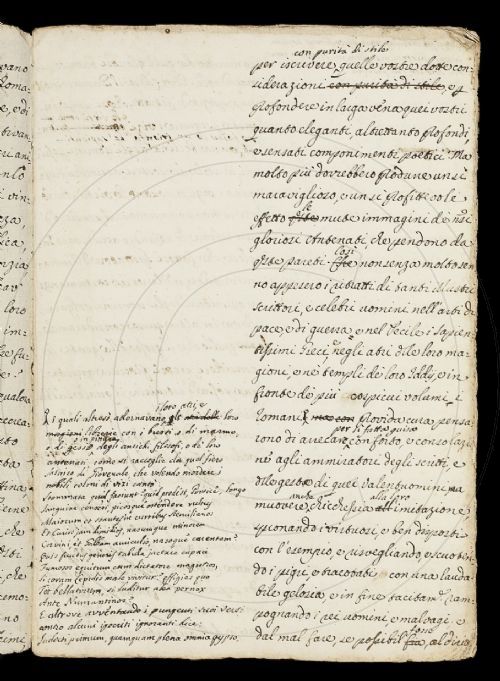 con purità di stile
per iscrivere quelle vostre dotte con-
siderazioni con purità di stile, e
profondere in larga vena quei vostri
quanto eleganti, altrettanto profondi,
e sensati componimenti poetici. Ma
molto più dovrebbero produrre un sì
maraviglioso, e un sì profittevole
effetto le mute immagini de nostri
gloriosi Antenati, che pendono da
queste pareti. Così non senza molto sen-
no appesero i ritratti di tanti illustri
scrittori, e celebri uomini nell'arti di
pace, e di guerra, e nel Pecile i Sapien-
tissimi Greci negli atri delle loro ma-
gioni, e ne templi de loro Iddij, e in
fronte de più cospicui volumi i
Romani
florida cura pensa-
rono di arrecar con
per sì fatta guisa
conforto, e consola-
ne agli ammiratori degli scritti, e
delle gesta di quei valentuomini, ma
muovere anche chicchesia alla loro imitazione
spronando i virtuosi, e ben disposti
con l'esempio, e risvegliando, e scuoten-
do i pigri, e
con una lauda-
bile gelosia, e in fine tacitam. ram-
pognando i rei uomini, e malvagi, e
dal mal fare, se possibil fosse, al diritto
i loro atri, e
i quali altresì adornavano gli loro
con i busti o di marmo,
o di gesso, degli antichi filosofi, o de' loro
antenati, come si raccoglie da quel fiero
Satirico di Giovenale, che volendo mordere i
nobili colmi di vizi cantò
Stemmata quid faciunt? quid prodest, Pontice, longo
Sanguine censeri, pictosque ostendere vultus
Maiorum et stantes in curribus Aemilianos
Et Curios iam dimidios, nasumque minorem
Corvini, et Galbam auriculis, nasoque carentem?
Quis fructus generis tabula jactare capaci
Fumosos equitum cum dictatore magistros,
Si coram Lepidis male vivitur? effigies quo
Tot bellatorum, si luditur alea pernox
Ante Numantinos?
E altrove avventando i pungenti suoi versi
contro alcuni ipocriti ignoranti dice:
Indocti primum, quamquam plena omnia gypso,